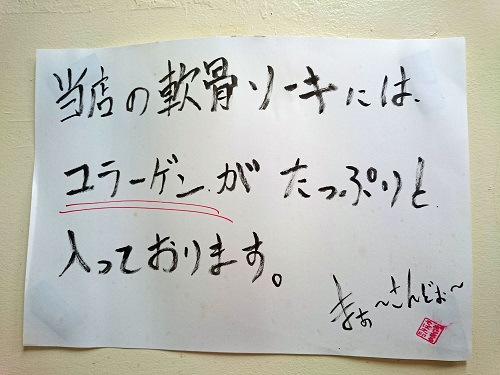 当店の軟骨ソーキには、
コラーゲンがたっぷりと
入っております。
まぁ～さんどぉ～